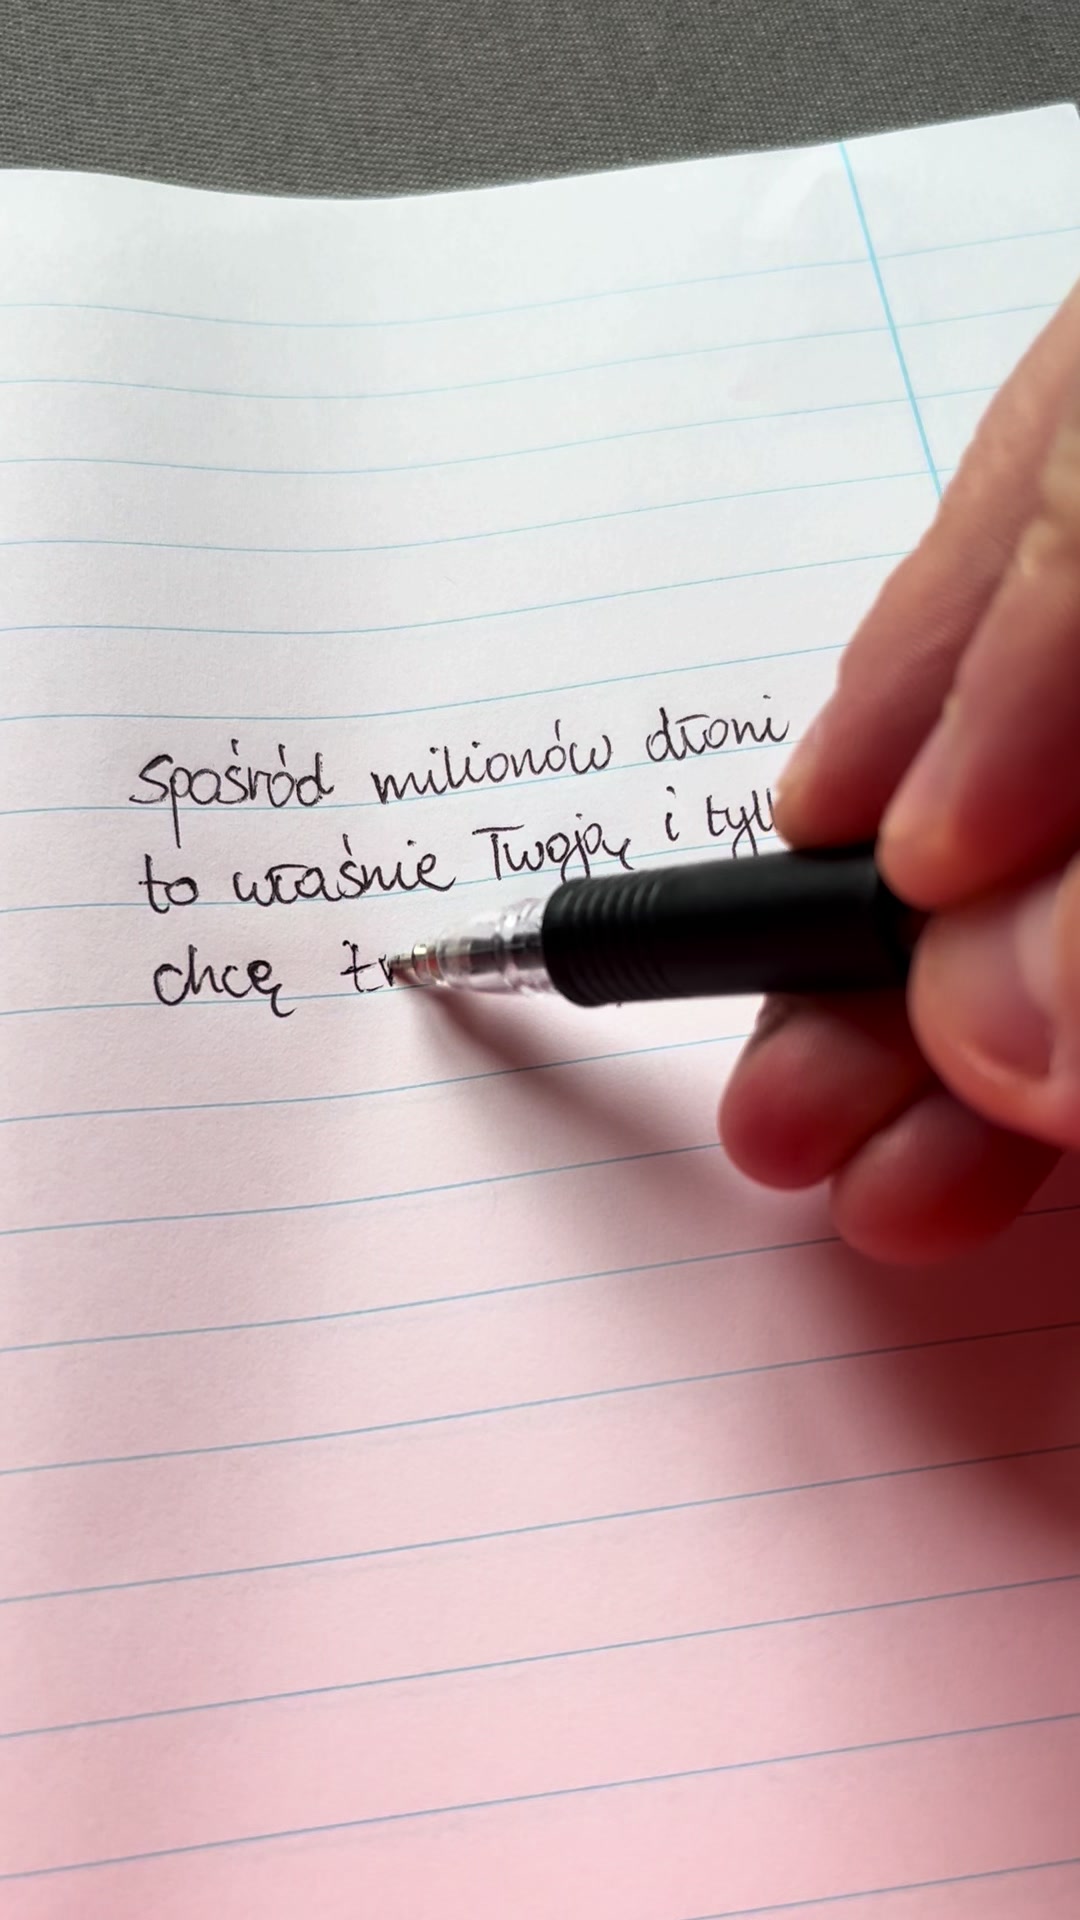 Spośród milionów dłoni
to właśnie Twoją i
chcę